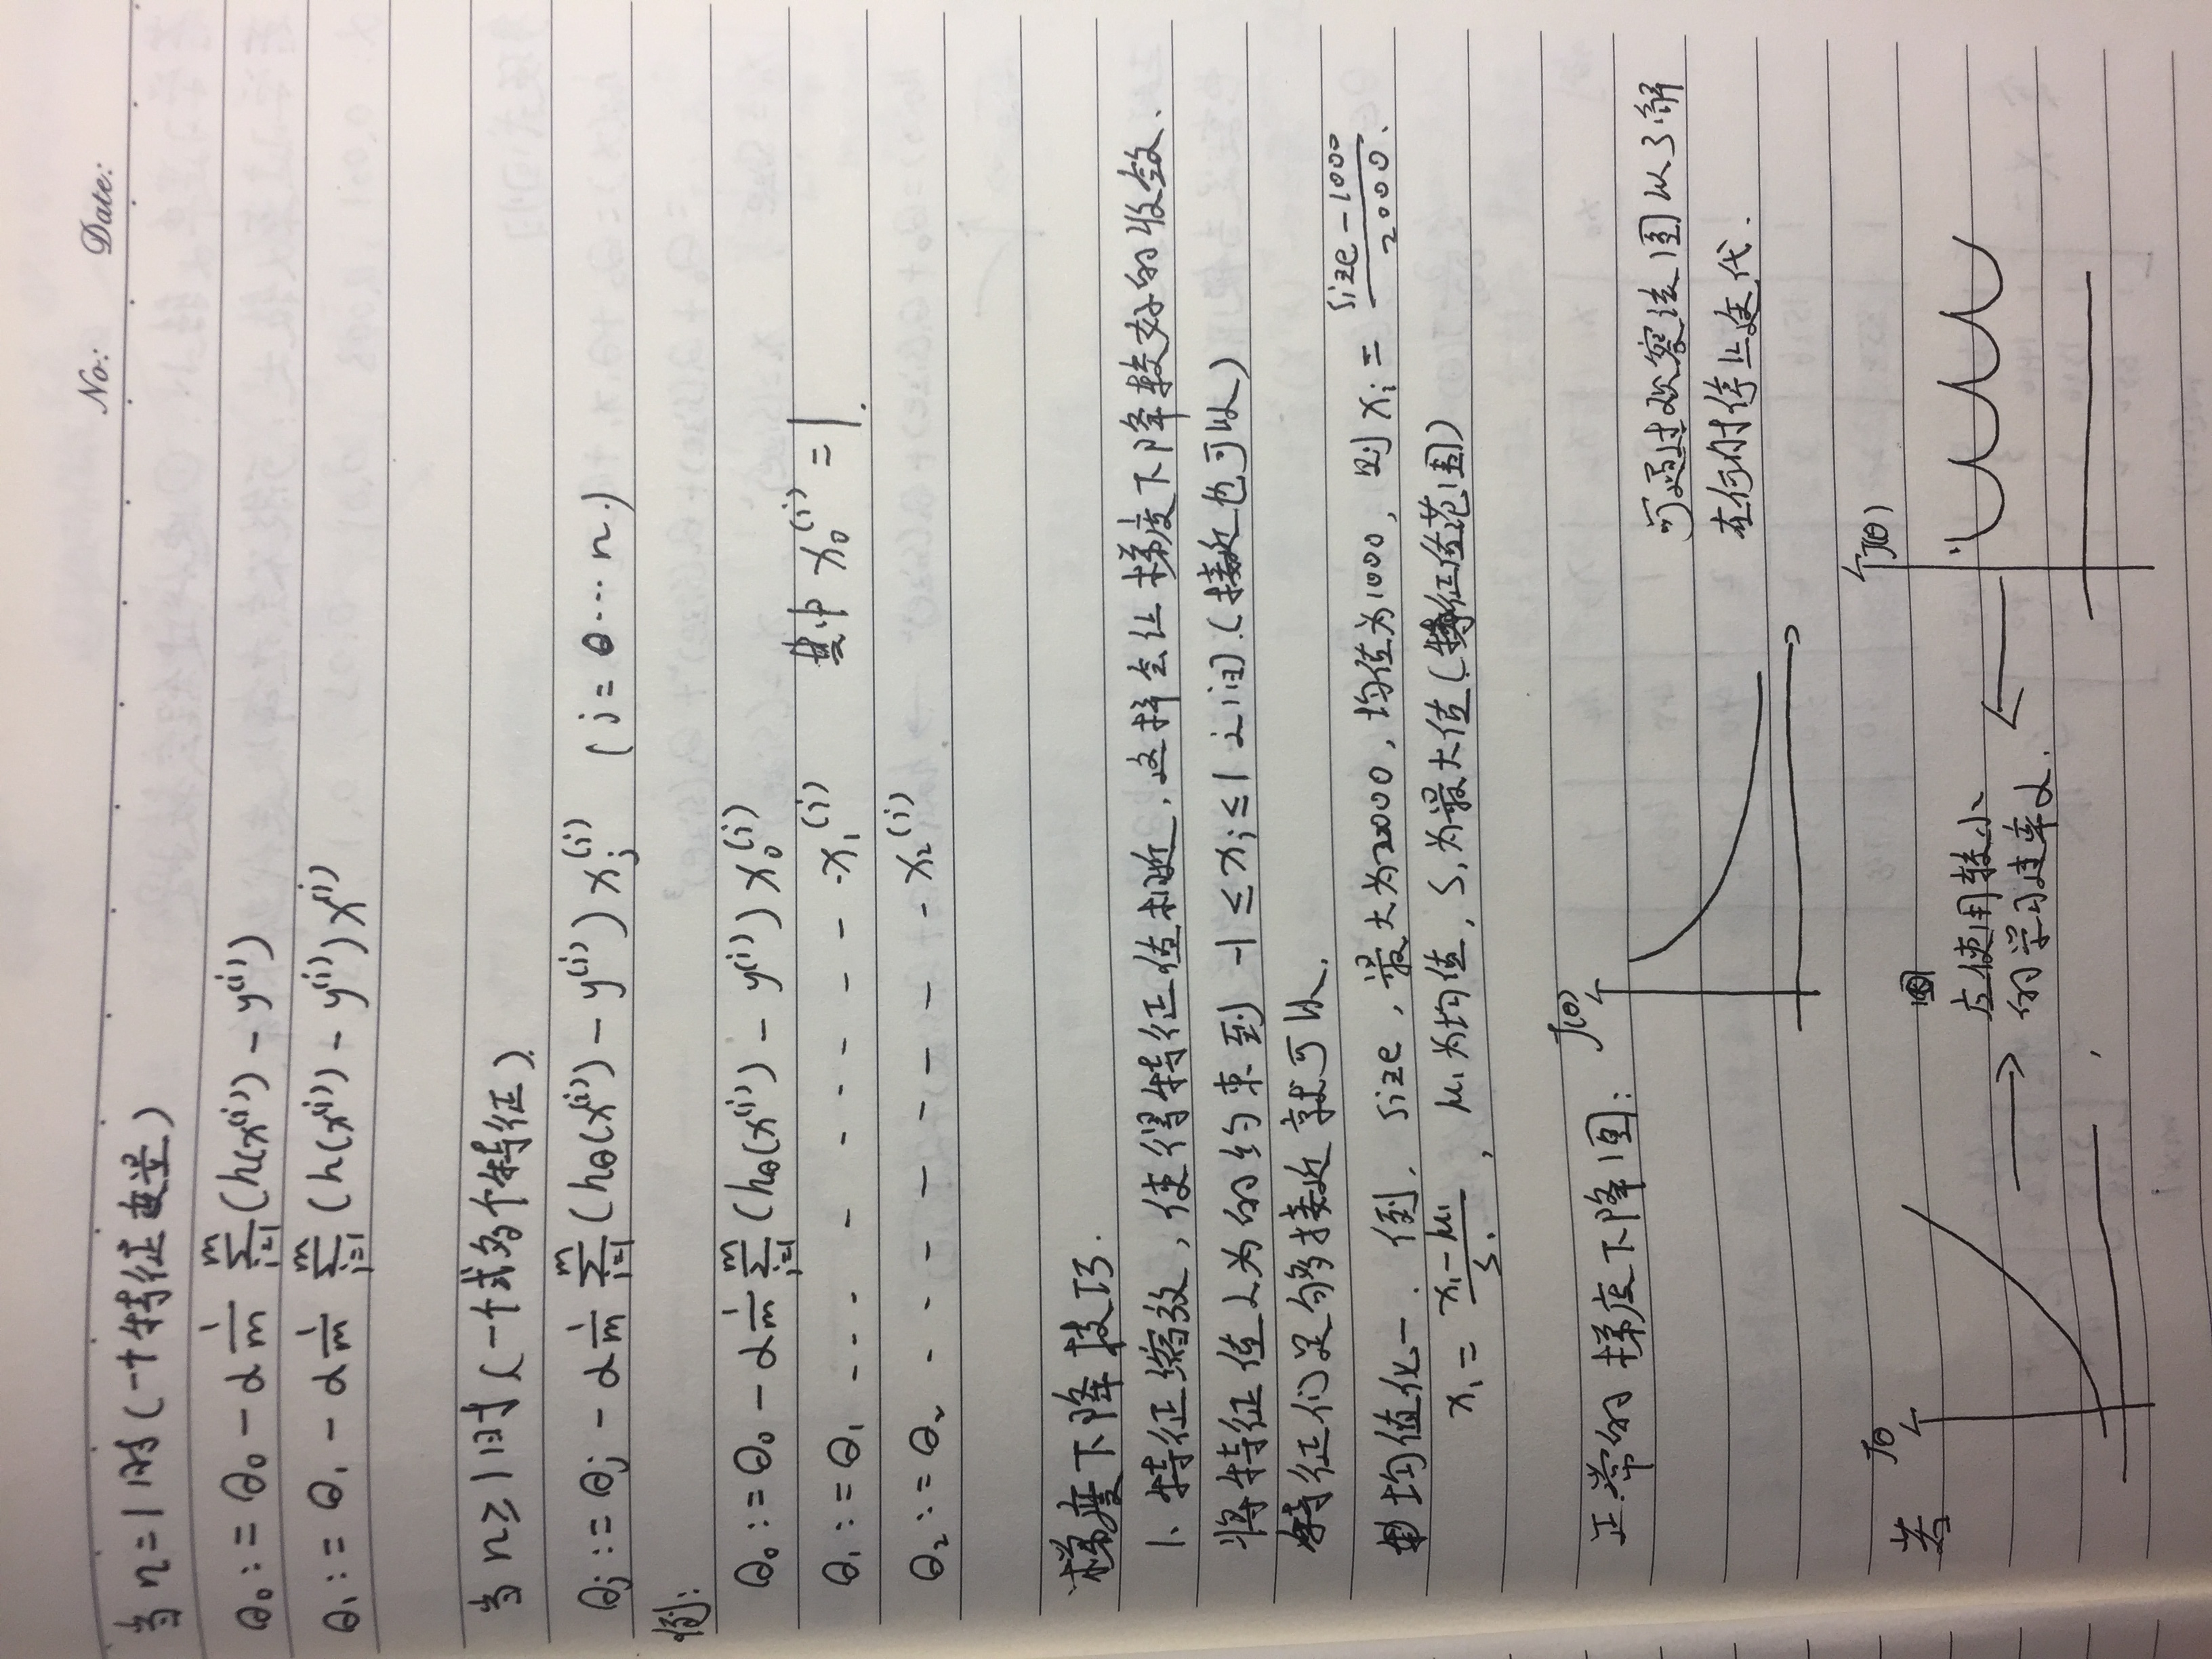 No: Date:
当 n=1 时(一个特征变量)
θ₀ := θ₀ - α 1/m Σ_{i=1}^{m} (h(x^{(i)}) - y^{(i)})
θ₁ := θ₁ - α 1/m Σ_{i=1}^{m} (h(x^{(i)}) - y^{(i)}) x^{(i)}
当 n≥1 时(一个或多个特征).
θj := θj - α 1/m Σ_{i=1}^{m} (hθ(x^{(i)}) - y^{(i)}) x_j^{(i)} (j = 0 ··· n.)
例:
θ₀ := θ₀ - α 1/m Σ_{i=1}^{m} (hθ(x^{(i)}) - y^{(i)}) x_0^{(i)}
θ₁ := θ₁ - - - - - - - - - - x_1^{(i)} 其中 x_0^{(i)} = 1.
θ₂ := θ₂ - - - - - - - - - x_2^{(i)}
梯度下降技巧.
1、特征缩放,使得特征值相近,这样会让梯度下降较好的收敛、
将特征值人为的约束到 -1 ≤ xi ≤ 1 之间.(接近也可以)
特征们足够接近就可以.
均值化一. 例, size, 最大为2000, 均值为1000, 则 xi = (size - 1000)/2000.
x₁ = (x₁ - μ₁)/S₁, μ₁为均值, S₁为最大值(特征值范围)
正常的梯度下降图:
J(θ)
可通过观察该图以了解
在何时停止迭代.
若
Jθ
应使用较小
的学习速率α.
J(θ)